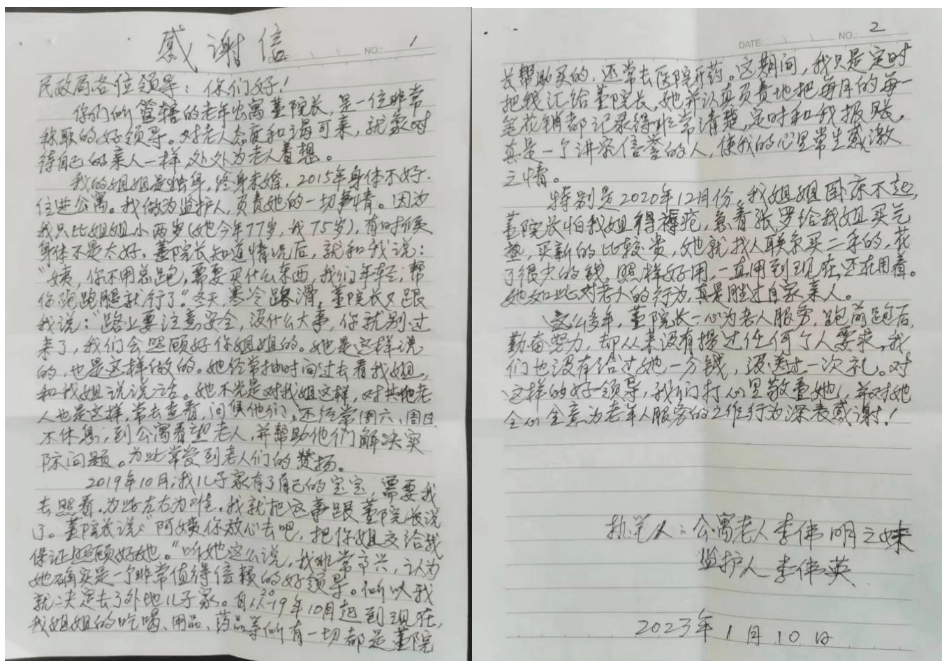 感谢信
NO.: 1
民政局各位领导：你们好！
你们所管辖的老年公寓董院长，是一位非常
称职的好领导。对老人态度和谒可亲，就象对
待自己的亲人一样，处处为老人着想。
我的姐姐是独身，终身未婚，2015年身体不好，
住进公寓。我做为监护人，负责她的一切事情。因为
我只比姐姐小两岁（她今年77岁，我75岁），有时候
身体不是太好。董院长知道情况后，就和我说：
“姨，你不用总跑，需要买什么东西，我们年轻，帮
你跑跑腿就行了”。冬天寒冷路滑，董院长又跟
我说：“路上要注意安全，没什么大事，你就别过
来了，我们会照顾好你姐姐的。她是这样说
的，也是这样做的。她经常抽时间过去看我姐，
和我姐说说话。她不光是对我姐这样，对其他老
人也是这样，常去查看，问候他们，还经常周六、周日
不休息，到公寓看望老人，并帮助他们解决实
际问题。为此常受到老人们的赞扬。
2019年10月，我儿子家有了自己的宝宝，需要我
去照看。为此左右为难。我就把这事跟董院长说
了。董院长说：“阿姨你放心去吧，把你姐交给我
保证照顾好她。”听她这么说，我非常高兴，认为
她确实是一个非常值得信赖的好领导。所以我
就决定去了外地儿子家。自从2019年10月起到现在，
我姐姐的吃喝、用品、药品等所有一切都是董院
DATE: NO.: 2
长帮助买的，还常去医院开药。这期间，我只是定时
把钱汇给董院长，她并认真负责地把每月的每一
笔花销都记录得非常清楚，定时和我报账。
真是一个讲究信誉的人，使我的心里常生感激
之情。
特别是2020年12月份，我姐姐卧床不起，
董院长怕我姐得褥疮，急着张罗给我姐买气
垫，买新的比较贵，她就找人联系买二手的，花
了很少的钱，照样好用，一直用到现在，还在用着。
她如此对老人的行为，真是胜过自家亲人。
这么多年，董院长一心为老人服务，跑前跑后，
勤奋努力，却从来没有提过任何个人要求，我
们也没有给过她一分钱，没送过一次礼。对
这样的好领导，我们打心里敬重她，并对她
全心全意为老年人服务的工作行为深表感谢！
执笔人：公寓老人李伟明之妹
监护人 李伟英
2023年1月10日